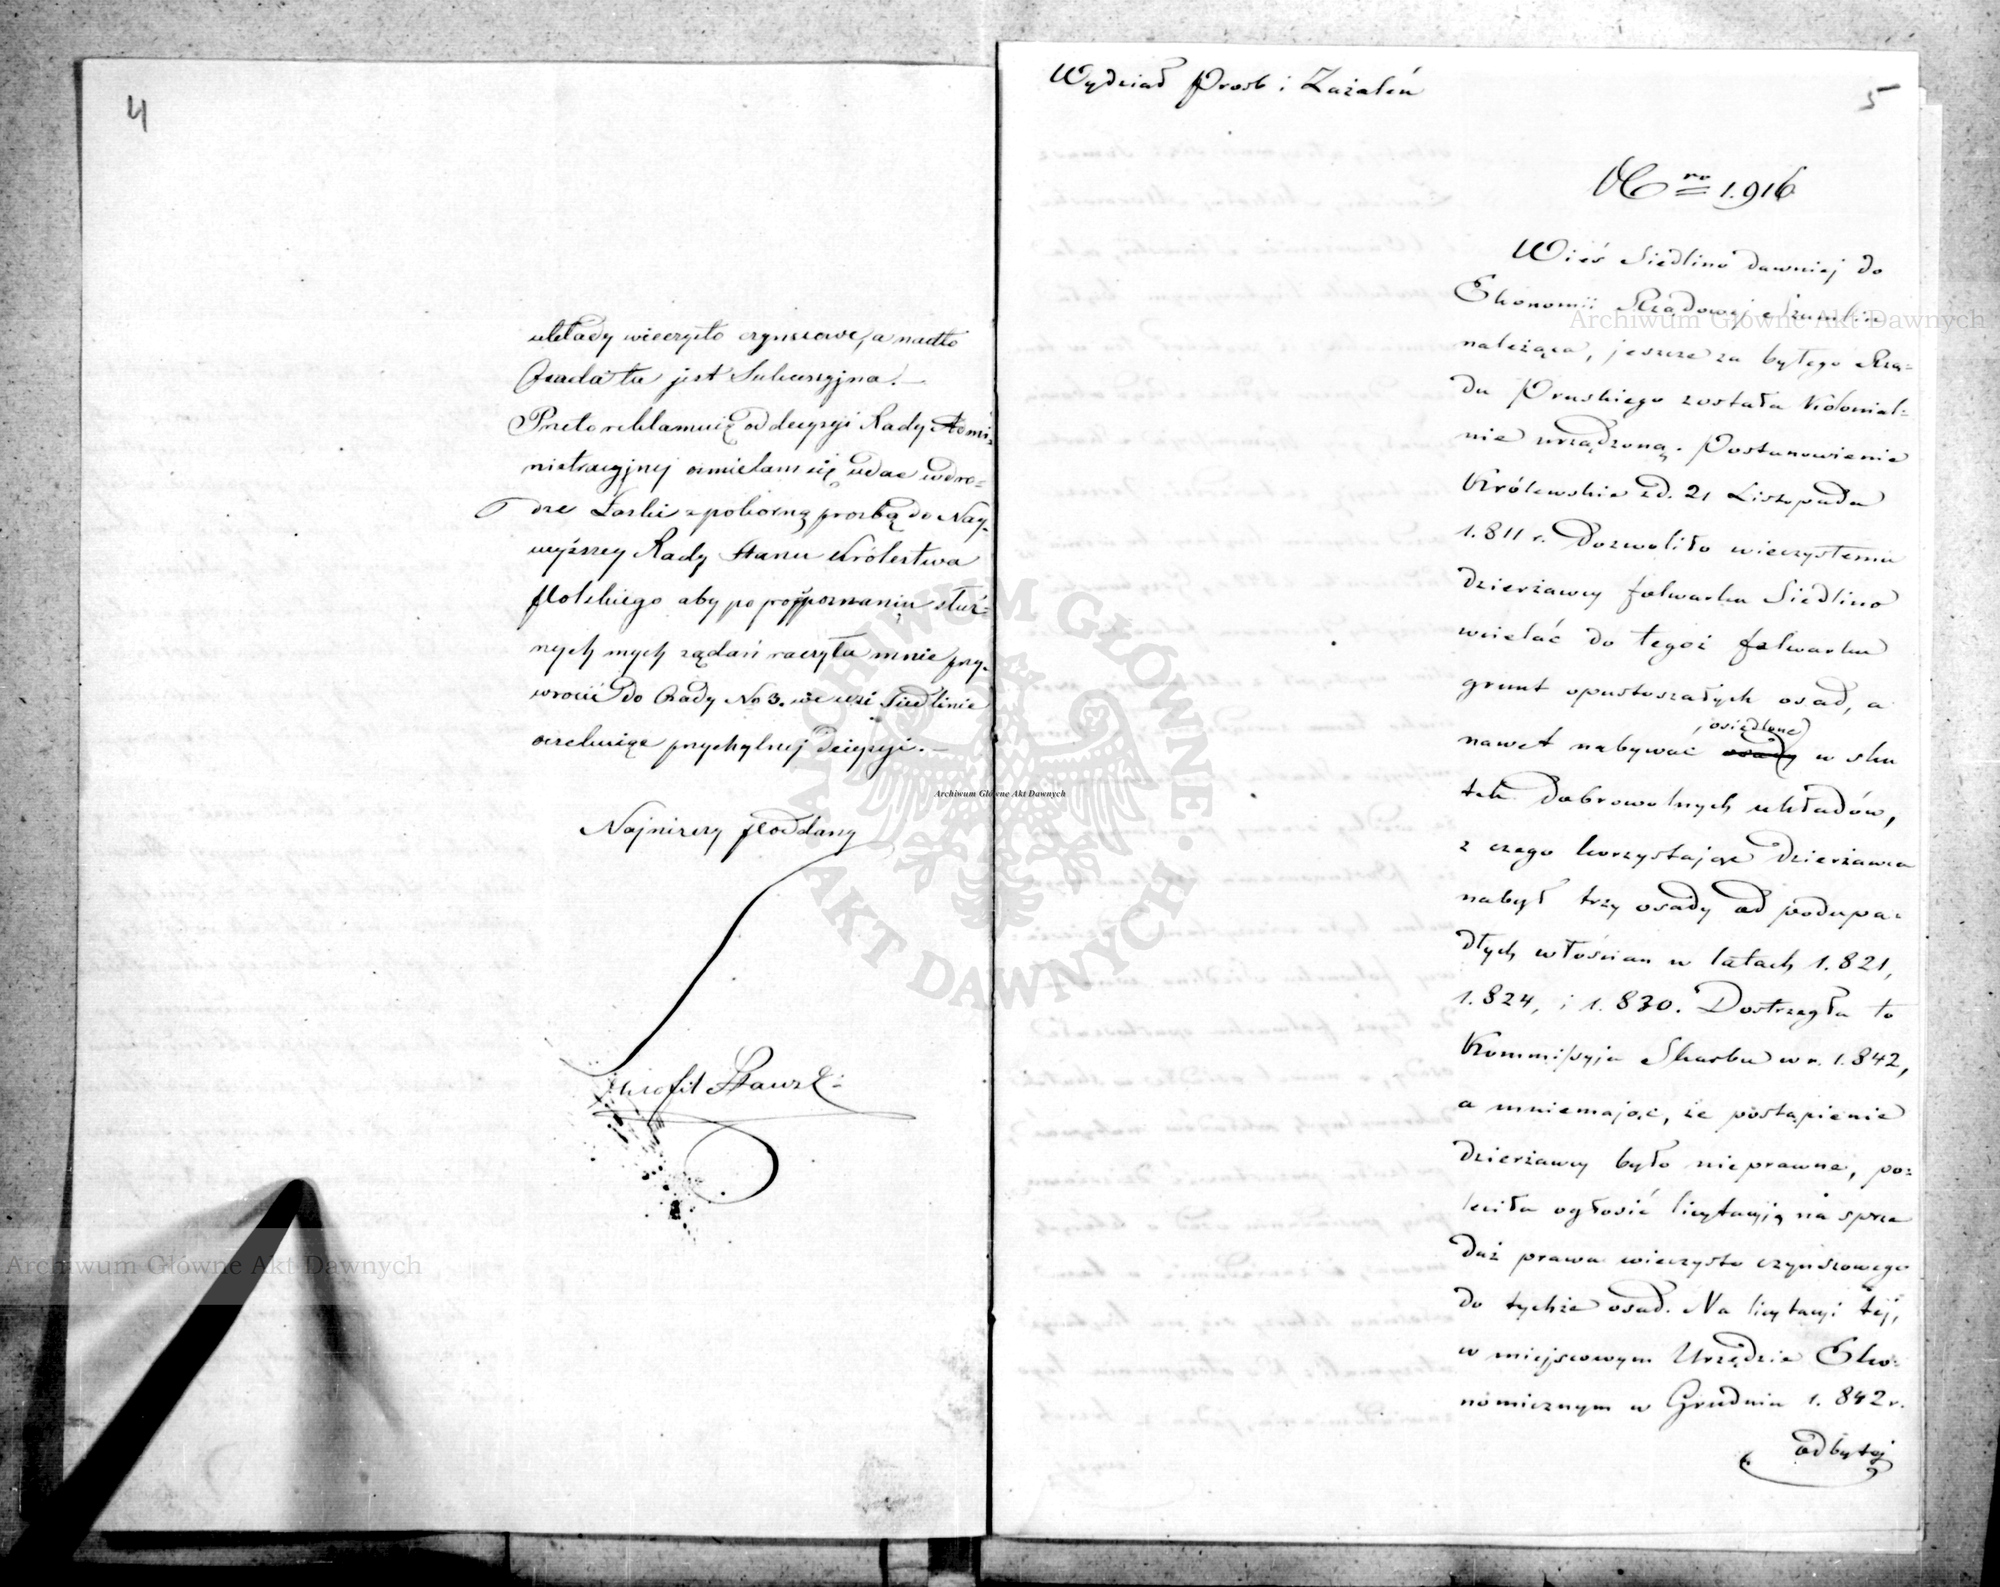 4
układy wieczysto czynszowe, a nadto
Osada ta jest Sukcesyjna. —
Przeto reklamuię od decyzyi Rady Admi-
nistracyjnej ośmielam się udać w dro-
dze Łaski z pokorną prozbą do Nay-
wyższey Rady Stanu Królestwa
Polskiego aby po rozpoznaniu służ-
nych mych rządań raczyła mnie przy-
wrócić do Osady No 3. we wsi Siedlinie
oczekuiąc przychylnej decyzyi. —
Najniższy Poddany
Teofil Stawski
Wydział Prosb i Zażaleń
5
Nro 1.916
Wieś Siedlino dawniej do
Ekonomii Rządowej
należąca, jeszcze za byłego Rzą-
du Pruskiego została kolonial-
nie urządzoną. Postanowienie
Królewskie z d. 21 Listopada
1.811 r. Dozwoliło wieczystemu
dzierżawcy folwarku Siedlino
wcielać do tegoż folwarku
grunt opustoszałych osad, a
nawet nabywać osady posiedlone w sku
tek dobrowolnych układów,
z czego korzystając dzierżawca
nabył trzy osady od podupa-
dłych włościan w latach 1.821,
1.824, i 1.830. Dostrzegła to
Kommissyja Skarbu w r. 1.842,
a mniemając, że postąpienie
dzierżawcy było nieprawne, po-
leciła ogłosić licytacyją na sprze
daż prawa wieczysto czynszowego
do tychże osad. Na licytacyi tej,
w miejscowym Urzędzie Eko-
nomicznym w Grudniu 1.842 r.
odbytej
Archiwum Główne Akt Dawnych
Archiwum Główne Akt Dawnych
Archiwum Główne Akt Dawnych
ARCHIWUM GŁÓWNE AKT DAWNYCH